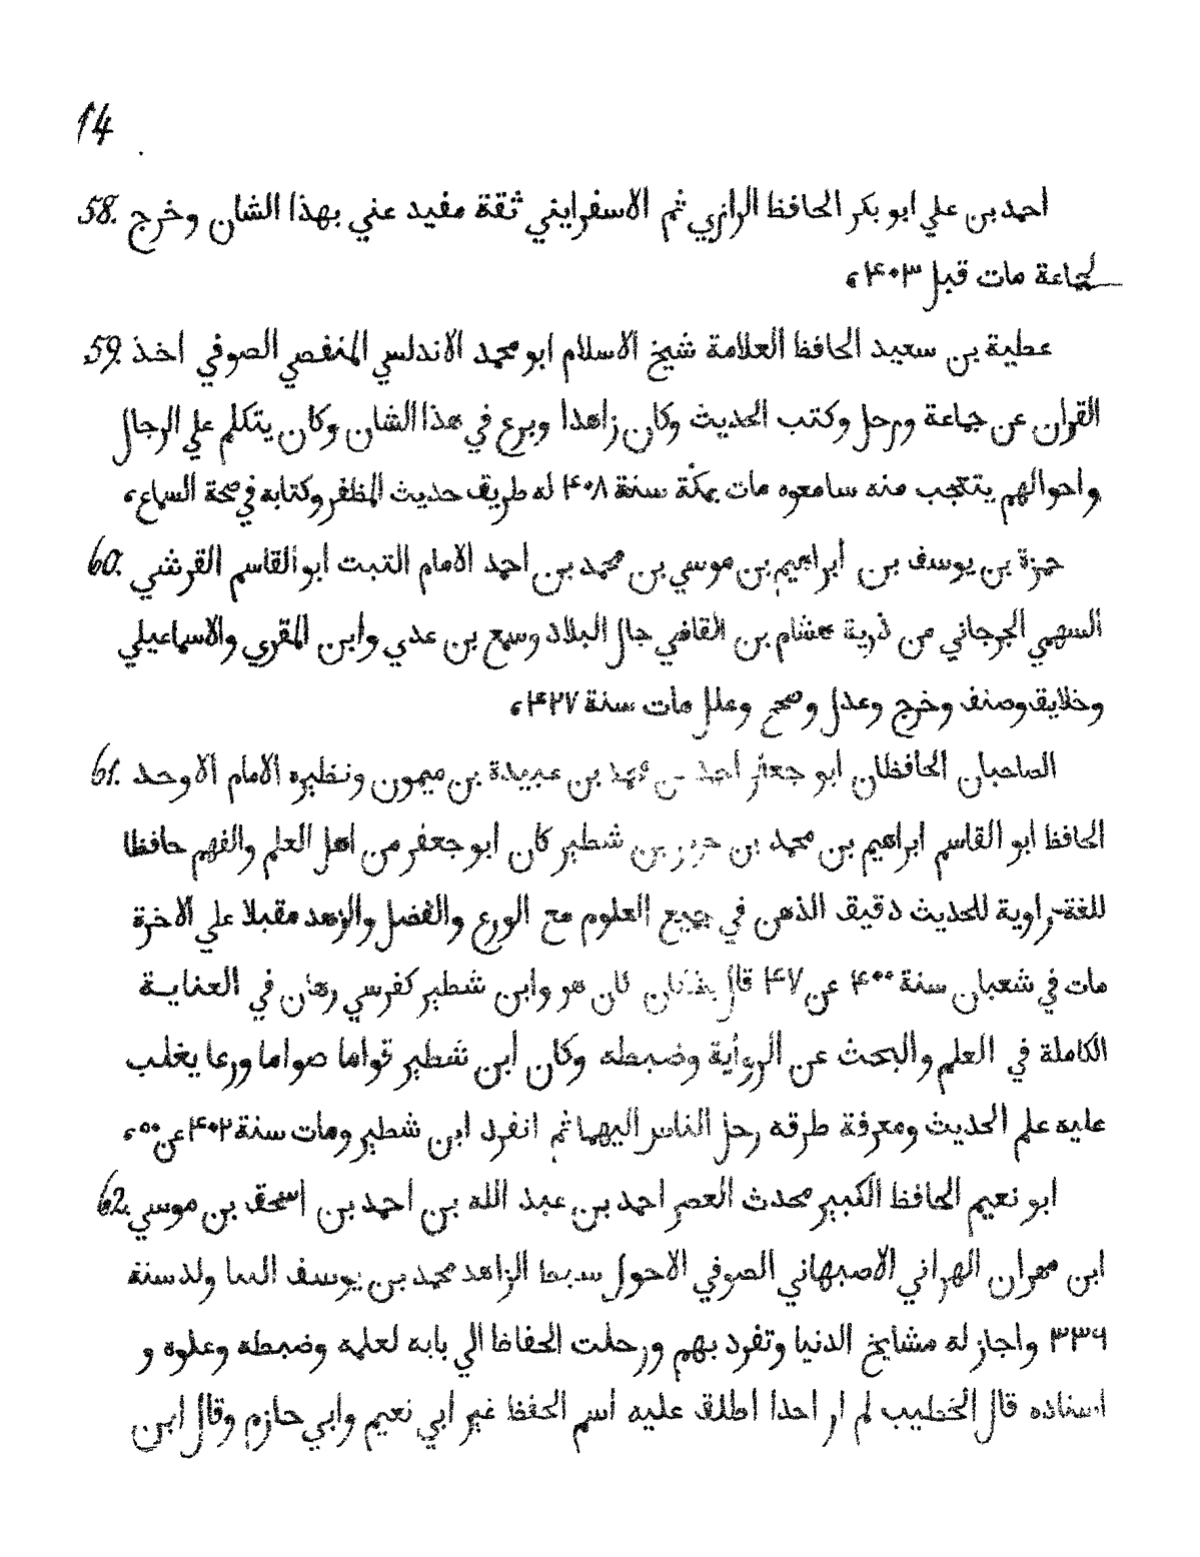 14
58. احمد بن علي ابو بكر الحافظ الرازي ثم الاسفرايني ثقة مفيد عني بهذا الشان وخرج
لجماعة مات قبل ۴۰۳،
59. عطية بن سعيد الحافظ العلامة شيخ الاسلام ابو محمد الاندلسي المنفصي الصوفي اخذ
القران عن جماعة ورحل وكتب الحديث وكان زاهدا وبرع في هذا الشان وكان يتكلم علي الرجال
واحوالهم يتعجب منه سامعوه مات بمكة سنة ۴۰۸ له طريف حديث المظفر وكتابه في صحة السماع،
60. حمزة بن يوسف بن ابراهيم بن موسي بن محمد بن احمد الامام الثبت ابو القاسم القرشي
السهمي الجرجاني من ذرية هشام بن القاضي جال البلاد وسمع بن عدي وابن المقري والاسماعيلي
وخلايق وصنف وخرج وعدل وصحح وعلل مات سنة ۴۲۷،
61. الصاحبان الحافظان ابو جعفر احمد بن محمد بن عبيدة بن ميمون ونظيره الامام الاوحد
الحافظ ابو القاسم ابراهيم بن محمد بن بن شطير كان ابو جعفر من اهل العلم والفهم حافظا
للغة راوية للحديث دقيق الذهن في جميع العلوم مع الورع والفضل والزهد مقبلا علي الاخرة
مات في شعبان سنة ۴۰۰ عن ۴۷ قال كان هو وابن شطير كفرسي رهان في العناية
الكاملة في العلم والبحث عن الرواية وضبطه وكان أبن شطير قواما صواما ورعا يغلب
عليه علم الحديث ومعرفة طرقه رحل الناس اليهما ثم انفرد ابن شطير ومات سنة ۴۰۲ عن ۵۰،
62. ابو نعيم الحافظ الكبير محدث العصر احمد بن عبد الله بن احمد بن اسحق بن موسي
ابن مهران الهراني الاصبهاني الصوفي الاحول سبط الزاهد محمد بن يوسف البنا ولد سنة
۳۳۶ واجاز له مشايخ الدنيا وتفرد بهم ورحلت الحفاظ الي بابه لعلمه وضبطه وعلوه و
اسناده قال الخطيب لم ار احدا اطلق عليه اسم الحفظ غير ابي نعيم وابي حازم وقال ابن